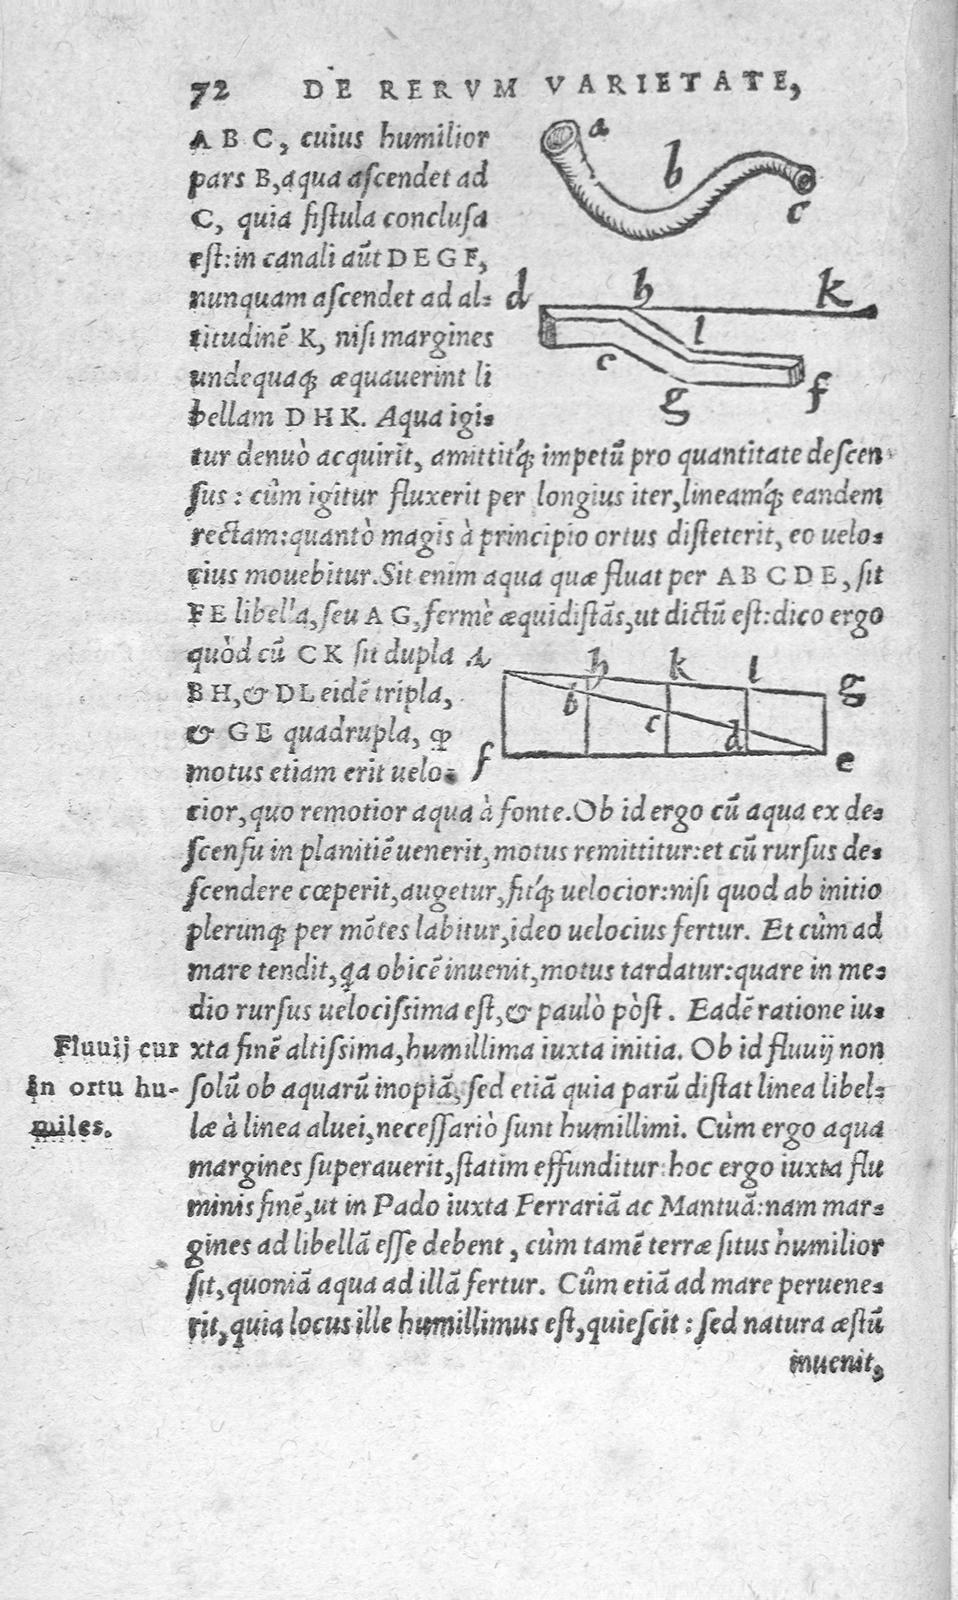 72 DE RERVM VARIETATE,
A B C, cuius humilior
pars B, aqua aſcendet ad
C, quia fiſtula concluſa
eſt: in canali aūt D E G F,
nunquam aſcendet ad al=
titudinē K, niſi margines
undequaq; æquauerint li
bellam D H K. Aqua igi=
tur denuò acquirit, amittit'q; impetū pro quantitate deſcen
ſus: cûm igitur fluxerit per longius iter, lineam'q; eandem
rectam: quantò magis à principio ortus diſteterit, eo uelo=
cius mouebitur. Sit enim aqua quæ fluat per A B C D E, ſit
F E libella, ſeu A G, fermè æquidiſtās, ut dictū eſt: dico ergo
quòd cū C K ſit dupla
B H, & D L eidē tripla,
& G E quadrupla, ꝙ
motus etiam erit uelo=
cior, quo remotior aqua à fonte. Ob id ergo cū aqua ex de=
ſcenſu in planitiē uenerit, motus remittitur: et cū rurſus de=
ſcendere cœperit, augetur, fit'q; uelocior: niſi quod ab initio
plerunq; per mōtes labitur, ideo uelocius fertur. Et cùm ad
mare tendit, q̃a obicē inuenit, motus tardatur: quare in me=
dio rurſus uelociſsima eſt, & paulò pòſt. Eadē ratione iu=
xta finē altiſsima, humillima iuxta initia. Ob id fluuij non
ſolū ob aquarū inopiā, ſed etiā quia parū diſtat linea libel=
læ à linea aluei, neceſſariò ſunt humillimi. Cùm ergo aqua
margines ſuperauerit, ſtatim effunditur: hoc ergo iuxta flu
minis finē, ut in Pado iuxta Ferrariā ac Mantuā: nam mar=
gines ad libellā eſſe debent, cùm tamē terræ ſitus humilior
ſit, quoniā aqua ad illā fertur. Cûm etiā ad mare peruene=
rit, quia locus ille humillimus eſt, quieſcit: ſed natura æſtū
inuenit,
Fluuij cur
in ortu hu-
miles.
a
b
c
d h k
l
e
g f
A h k l g
b c d
f e